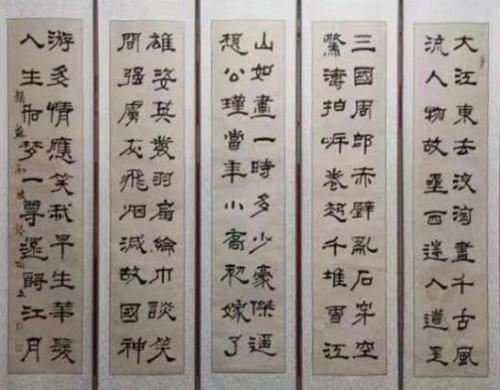 大江東去浪淘盡千古風
流人物故壘西邊人道是
三國周郎赤壁亂石穿空
驚濤拍岸卷起千堆雪江
山如畫一時多少豪傑遙
想公瑾當年小喬初嫁了
雄姿英發羽扇綸巾談笑
間強虜灰飛烟滅故國神
游多情應笑我早生華髮
人生如夢一尊還酹江月